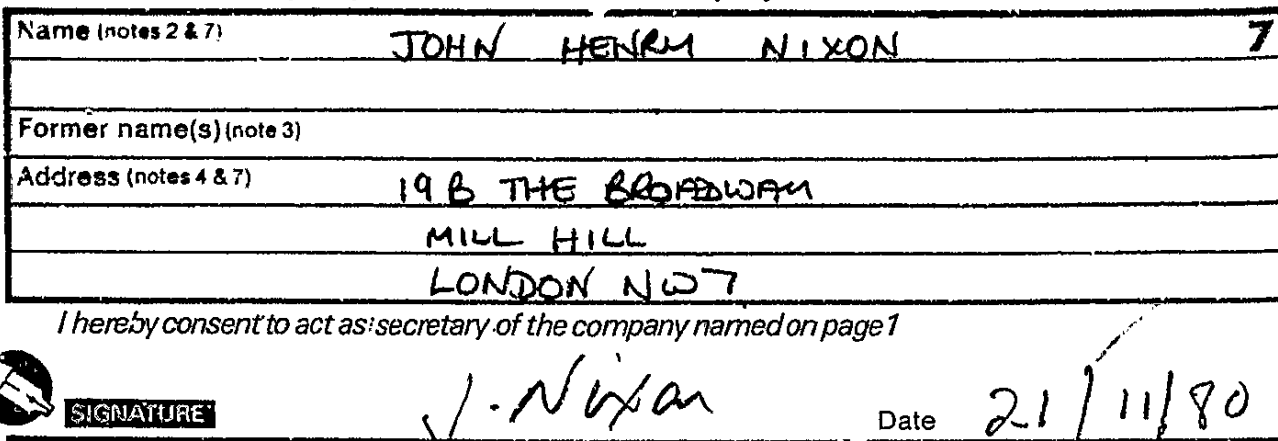 Name (notes 2 & 7) JOHN HENRY NIXON 7
Former name(s) (note 3)
Address (notes 4 & 7) 19 B THE BROADWAY
MILL HILL
LONDON NW7
I hereby consent to act as secretary of the company named on page 1
SIGNATURE J. Nixon Date 21/11/80